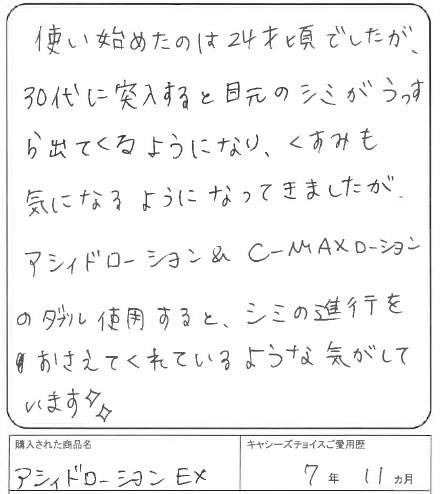 使い始めたのは24才頃でしたが、
30代に突入すると目元のシミがうっす
ら出てくるようになり、くすみも
気になるようになってきましたが、
アシィドローション& C-MAXローション
のダブル使用すると、シミの進行を
おさえてくれているような気がして
います
購入された商品名
キャシーズチョイスご愛用歴
アシィドローションEX
7年 11ヵ月